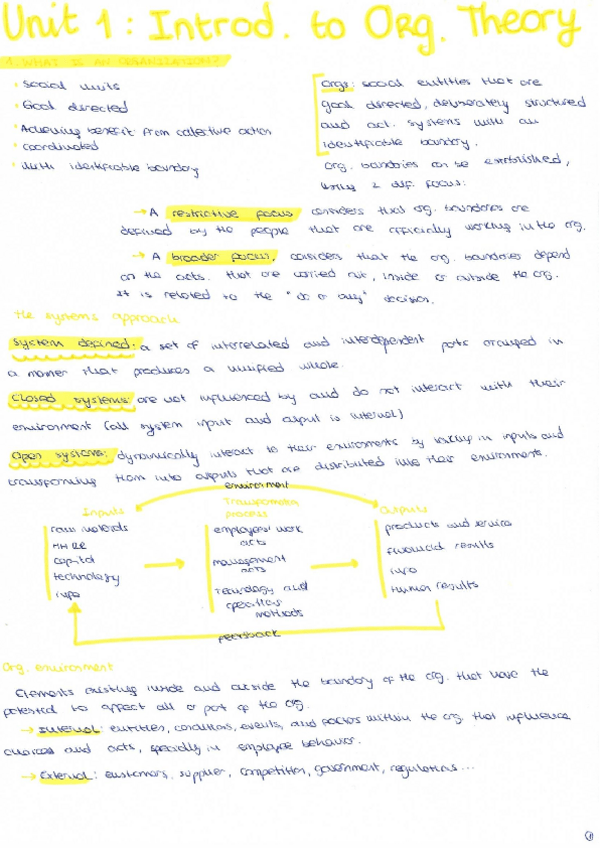 Unit 1: Introd. to Org. Theory
1. WHAT IS AN ORGANIZATION?
· Social units
· Goal directed
· Achieving benefit from collective action
· coordinated
· with identifiable boundary
Orgs: social entities that are
goal directed, deliberately structured
and act. systems with an
identifiable boundary.
Org. boundaries can be established,
using 2 dif. focus:
→ A restrictive focus considers that org. boundaries are
defined by the people that are officially working in the org.
→ A broader focus, considers that the org. boundaries depend
on the acts. that are carried out, inside or outside the org.
It is related to the "do or buy" decision.
The systems approach
System defined: a set of interrelated and interdependent parts arranged in
a manner that produces a unified whole.
Closed systems: are not influenced by and do not interact with their
environment (all system input and output is internal)
Open systems: dynamically interact to their environments by taking in inputs and
transforming them into outputs that are distributed into their environments.
environment
Inputs
raw materials
HHRR
capital
technology
info
Transformation
process
employees' work
acts
management
acts
technology and
operations
methods
Outputs
products and service
financial results
info
human results
feedback
Org. environment
Elements existing inside and outside the boundary of the org. that have the
potential to affect all or part of the org.
→ Internal: entities, conditions, events, and factors within the org. that influence
choices and acts, specially in employee behavior.
→ External: customers, supplier, competition, government, regulations...
1